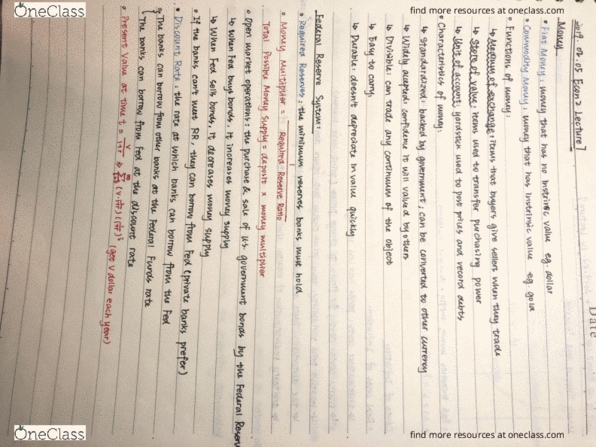 find more resources at oneclass.com
OneClass
Date
2019. 02. 05 Econ 2 Lecture 7
Money
• Fiat Money: money that has no instrinsic value eg. dollar
• Commodity Money: money that has instrinsic value eg. gold
• Functions of money:
↳ Medium of exchange: items that buyers give sellers when they trade
↳ Store of value: items used to transfer purchasing power
↳ Unit of account: yardstick used to post prices and record debts
• Characteristics of money:
↳ Standardized: backed by government; can be converted to other currency
↳ Widely accepted: confidence it will valued by others
↳ Divisible: can trade any continuum of the object
↳ Easy to carry.
↳ Durable: doesn't depreciate in value quickly
Federal Reserve System:
• Required Reserves: the minimum reserves banks must hold
• Money Multiplier = 1 / Required Reserve Ratio
Total Possible Money Supply = deposit x money multiplier
• Open market operations: the purchase & sale of U.S. government bonds by the Federal Reserve
↳ When Fed buys bonds, it increases money supply
↳ When Fed sells bonds, it decreases money supply
• If the banks can't meet RR, they can borrow from Fed (private banks prefer)
• Discount Rate: the rate at which banks can borrow from the Fed
The banks can borrow from other banks at the Federal Funds rate
The banks can borrow from Fed at the discount rate
• Present Value at time t = (get V dollar each year)
OneClass
find more resources at oneclass.com